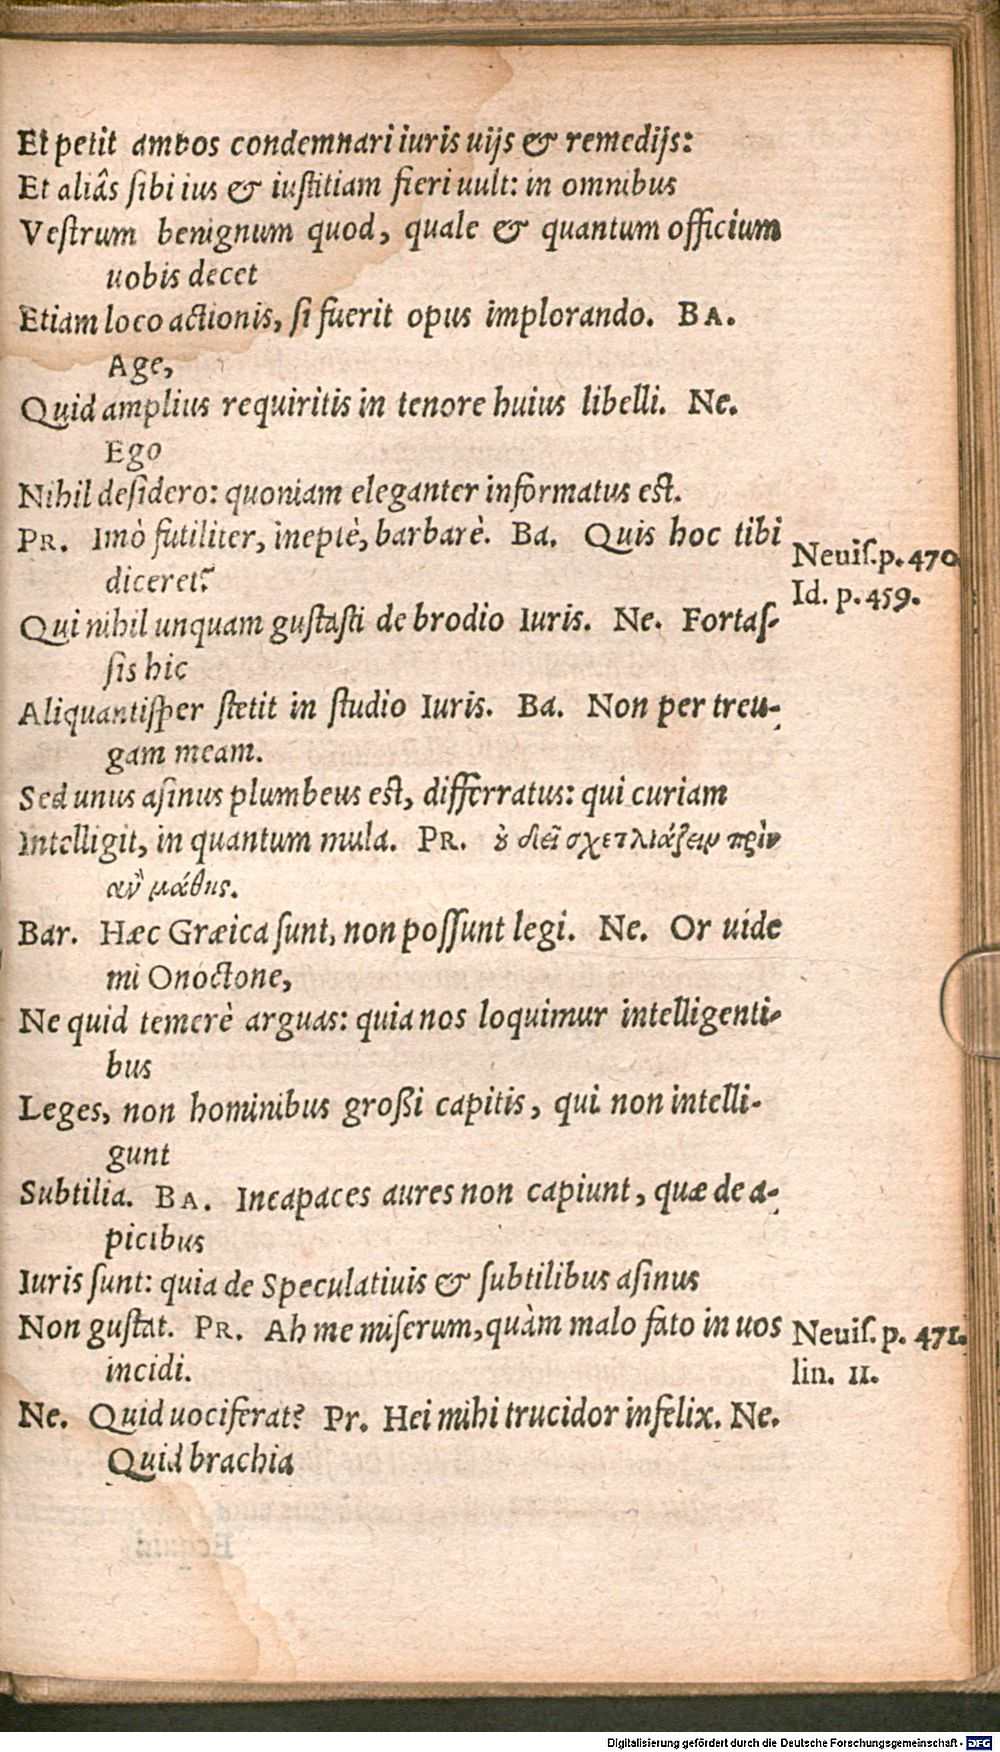 Et petit ambos condemnari iuris uijs & remedijs:
Et aliâs ſibi ius & iuſtitiam fieri uult: in omnibus
Veſtrum benignum quod, quale & quantum officium
uobis decet
Etiam loco actionis, ſi fuerit opus implorando. BA.
Age,
Quid amplius requiritis in tenore huius libelli. Ne.
Ego
Nihil deſidero: quoniam eleganter informatus eſt.
PR. Imò futiliter, ineptè, barbarè. Ba. Quis hoc tibi
diceret?
Neuiſ. p. 470
Id. p. 459.
Qui nihil unquam guſtaſti de brodio Iuris. Ne. Fortaſ-
ſis hic
Aliquantiſper ſtetit in ſtudio Iuris. Ba. Non per treu-
gam meam.
Sed unus aſinus plumbeus eſt, differratus: qui curiam
Intelligit, in quantum mula. PR. ȣ̓ δεῖ σχετλιάζειν πρὶν
ἂν μάθῃς.
Bar. Hæc Græica ſunt, non poſſunt legi. Ne. Or uide
mi Onoctone,
Ne quid temerè arguas: quia nos loquimur intelligenti-
bus
Leges, non hominibus groſſi capitis, qui non intelli-
gunt
Subtilia. BA. Incapaces aures non capiunt, quæ de a-
picibus
Iuris ſunt: quia de Speculatiuis & ſubtilibus aſinus
Non guſtat. PR. Ah me miſerum, quàm malo fato in uos
incidi.
Neuiſ. p. 471.
lin. 11.
Ne. Quid uociferat? Pr. Hei mihi trucidor infelix. Ne.
Quid brachia
Digitalisierung gefördert durch die Deutsche Forschungsgemeinschaft - DFG